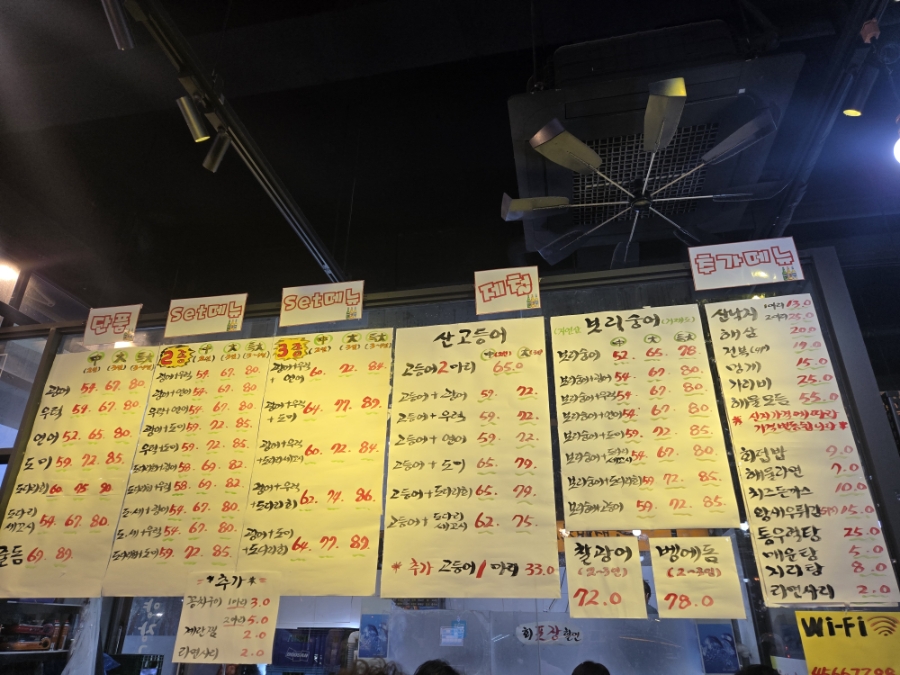 단품
中 大 특大
광어 54. 67. 80.
우럭 54. 67. 80.
연어 52. 65. 80.
도미 59. 72. 85.
도다리회 60. 75. 80
도다리
세고시 54. 67. 80.
줄돔 69. 89.
Set메뉴
2종 中 大 특大
광어+우럭 54. 67. 80.
광어+연어 54. 67. 80.
우럭+연어 54. 67. 80.
광어+도미 59. 72. 85.
우럭+도미 59. 72. 85.
58. 69. 82.
58. 69. 82.
54. 67. 80.
54. 67. 80.
59. 72. 85.
Set메뉴
3종 中 大 특大
광어+우럭
+연어 60. 72. 84.
광어+우럭
+도미 64. 77. 89.
광어+우럭
+도다리세고시 60. 72. 84.
광어+우럭
+도다리회 62. 74. 86.
광어+도미
+도다리회 64. 77. 89.
*추가*
꽁치구이 1마리 3.0
2마리 5.0
계란찜 2.0
라면사리 2.0
제철
산고등어
고등어 2마리 65.0
고등어+광어 59. 72.
고등어+우럭 59. 72.
고등어+연어 59. 72.
고등어+도미 65. 79.
고등어+도다리회 65. 79.
고등어+도다리
세고시 62. 75.
* 추가 고등어 1마리 33.0
보리숭어
中 大 특大
보리숭어 52. 65. 78.
보리숭어+광어 54. 67. 80.
보리숭어+우럭 54. 67. 80.
보리숭어+연어 54. 67. 80.
보리숭어+도미 59. 72. 85.
보리숭어+도다리
세고시 54. 67. 80.
보리숭어+도다리회 59. 72. 85.
보리숭어+고등어 59. 72. 85.
찰광어
(2~3인)
72.0
뱅에돔
(2~3인)
78.0
회포장
추가메뉴
산낙지 1마리 13.0
2마리 25.0
해삼 20.0
전복
멍게 15.0
가리비 25.0
해물모듬 55.0
회덮밥 9.0
해물라면 7.0
치즈돈까스 10.0
왕새우튀김 15.0
동우럭탕 25.0
매운탕 5.0
지리탕 8.0
라면사리 2.0
Wi-Fi